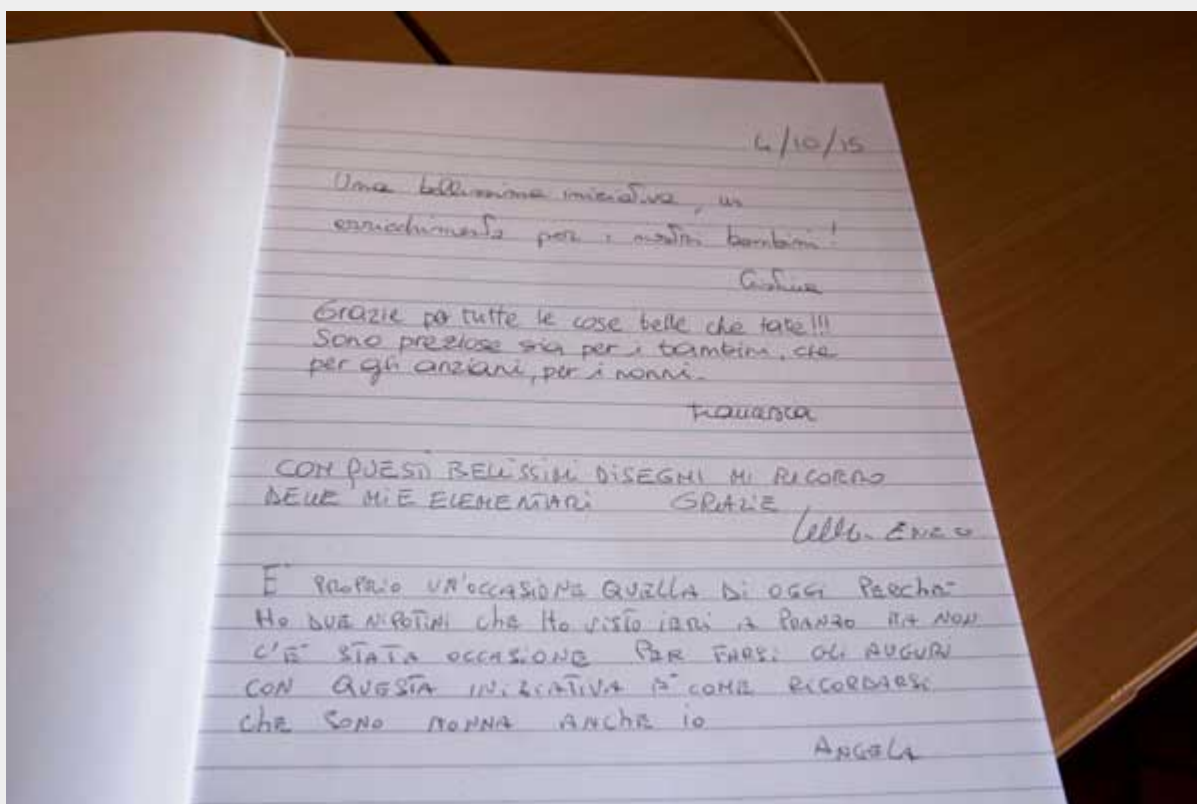 4/10/15
Una bellissima iniziativa, un
arricchimento per i nostri bambini!
Grazie per tutte le cose belle che fate!!!
Sono preziose sia per i bambini, che
per gli anziani, per i nonni.
Francesca
CON QUESTI BELLISSIMI DISEGNI MI RICORDO
DELLE MIE ELEMENTARI GRAZIE
ENZO
E' PROPRIO UN'OCCASIONE QUELLA DI OGGI PERCHE'
HO DUE NIPOTINI CHE HO VISTO IERI A PRANZO MA NON
C'E' STATA OCCASIONE PER FARSI GLI AUGURI
CON QUESTA INIZIATIVA E' COME RICORDARSI
CHE SONO NONNA ANCHE IO
ANGELA